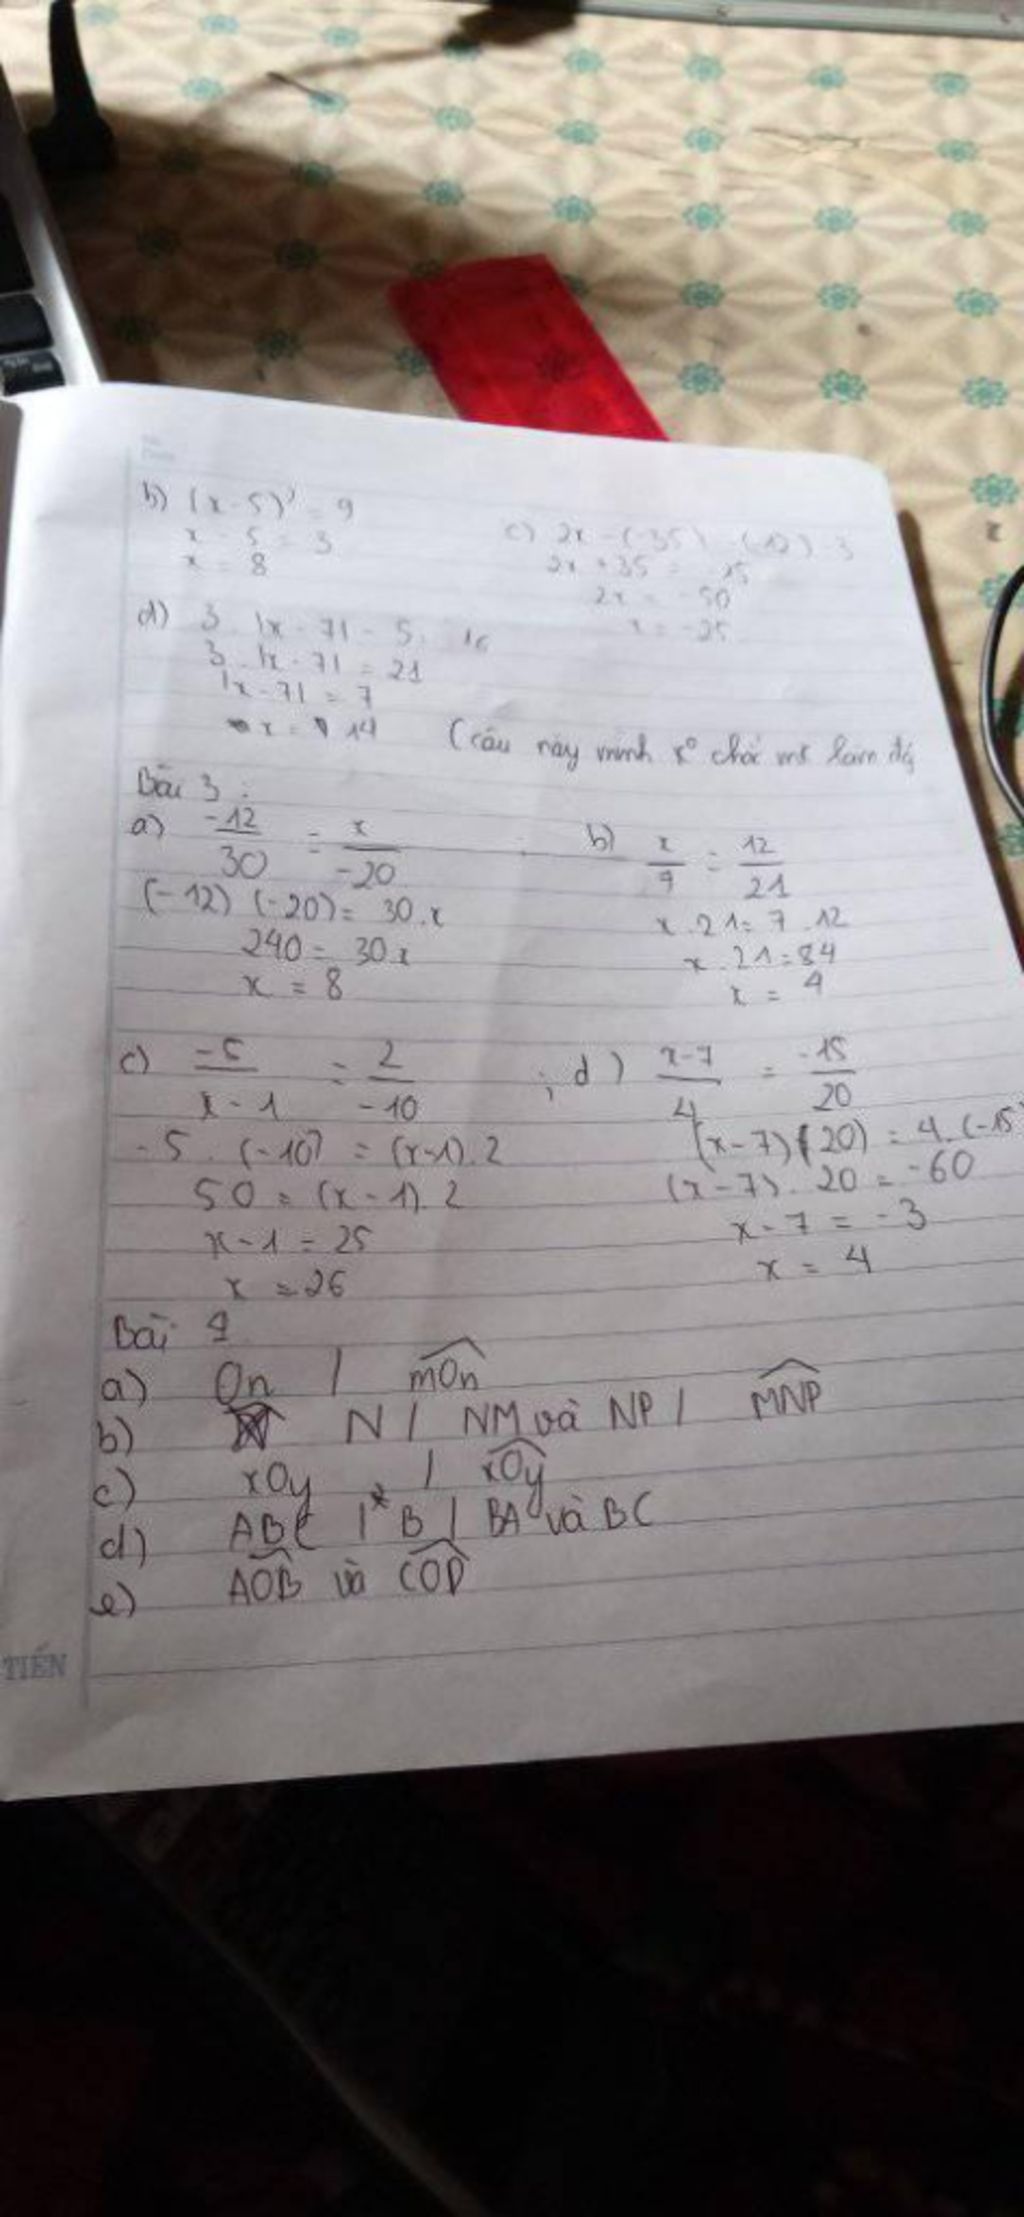 b) (x - 5)² = 9
x - 5 = 3
x = 8
c) 2x - (-35) = (-12) - 3
2x + 35 = -15
2x = -50
x = -25
d) 3 . |x - 7| - 5 = 16
3 . |x - 7| = 21
|x - 7| = 7
x = 14 (câu này mình k° chắc làm
Bài 3 :
a) -12/30 = x/-20
(-12) (-20) = 30.x
240 = 30x
x = 8
b) x/7 = 12/21
x . 21 = 7 . 12
x . 21 = 84
x = 4
c) -5/x-1 = 2/-10
-5 . (-10) = (x-1).2
50 = (x - 1). 2
x - 1 = 25
x = 26
; d) x-7/4 = -15/20
(x-7)(20) = 4.(-15)
(x-7). 20 = -60
x - 7 = -3
x = 4
Bài 4
a) On / m̂On
b) N / NM và NP / M̂NP
c) xOy / x̂Oy
d) ABC / B / BA và BC
e) ÂOB và ĈOD
TIẾN